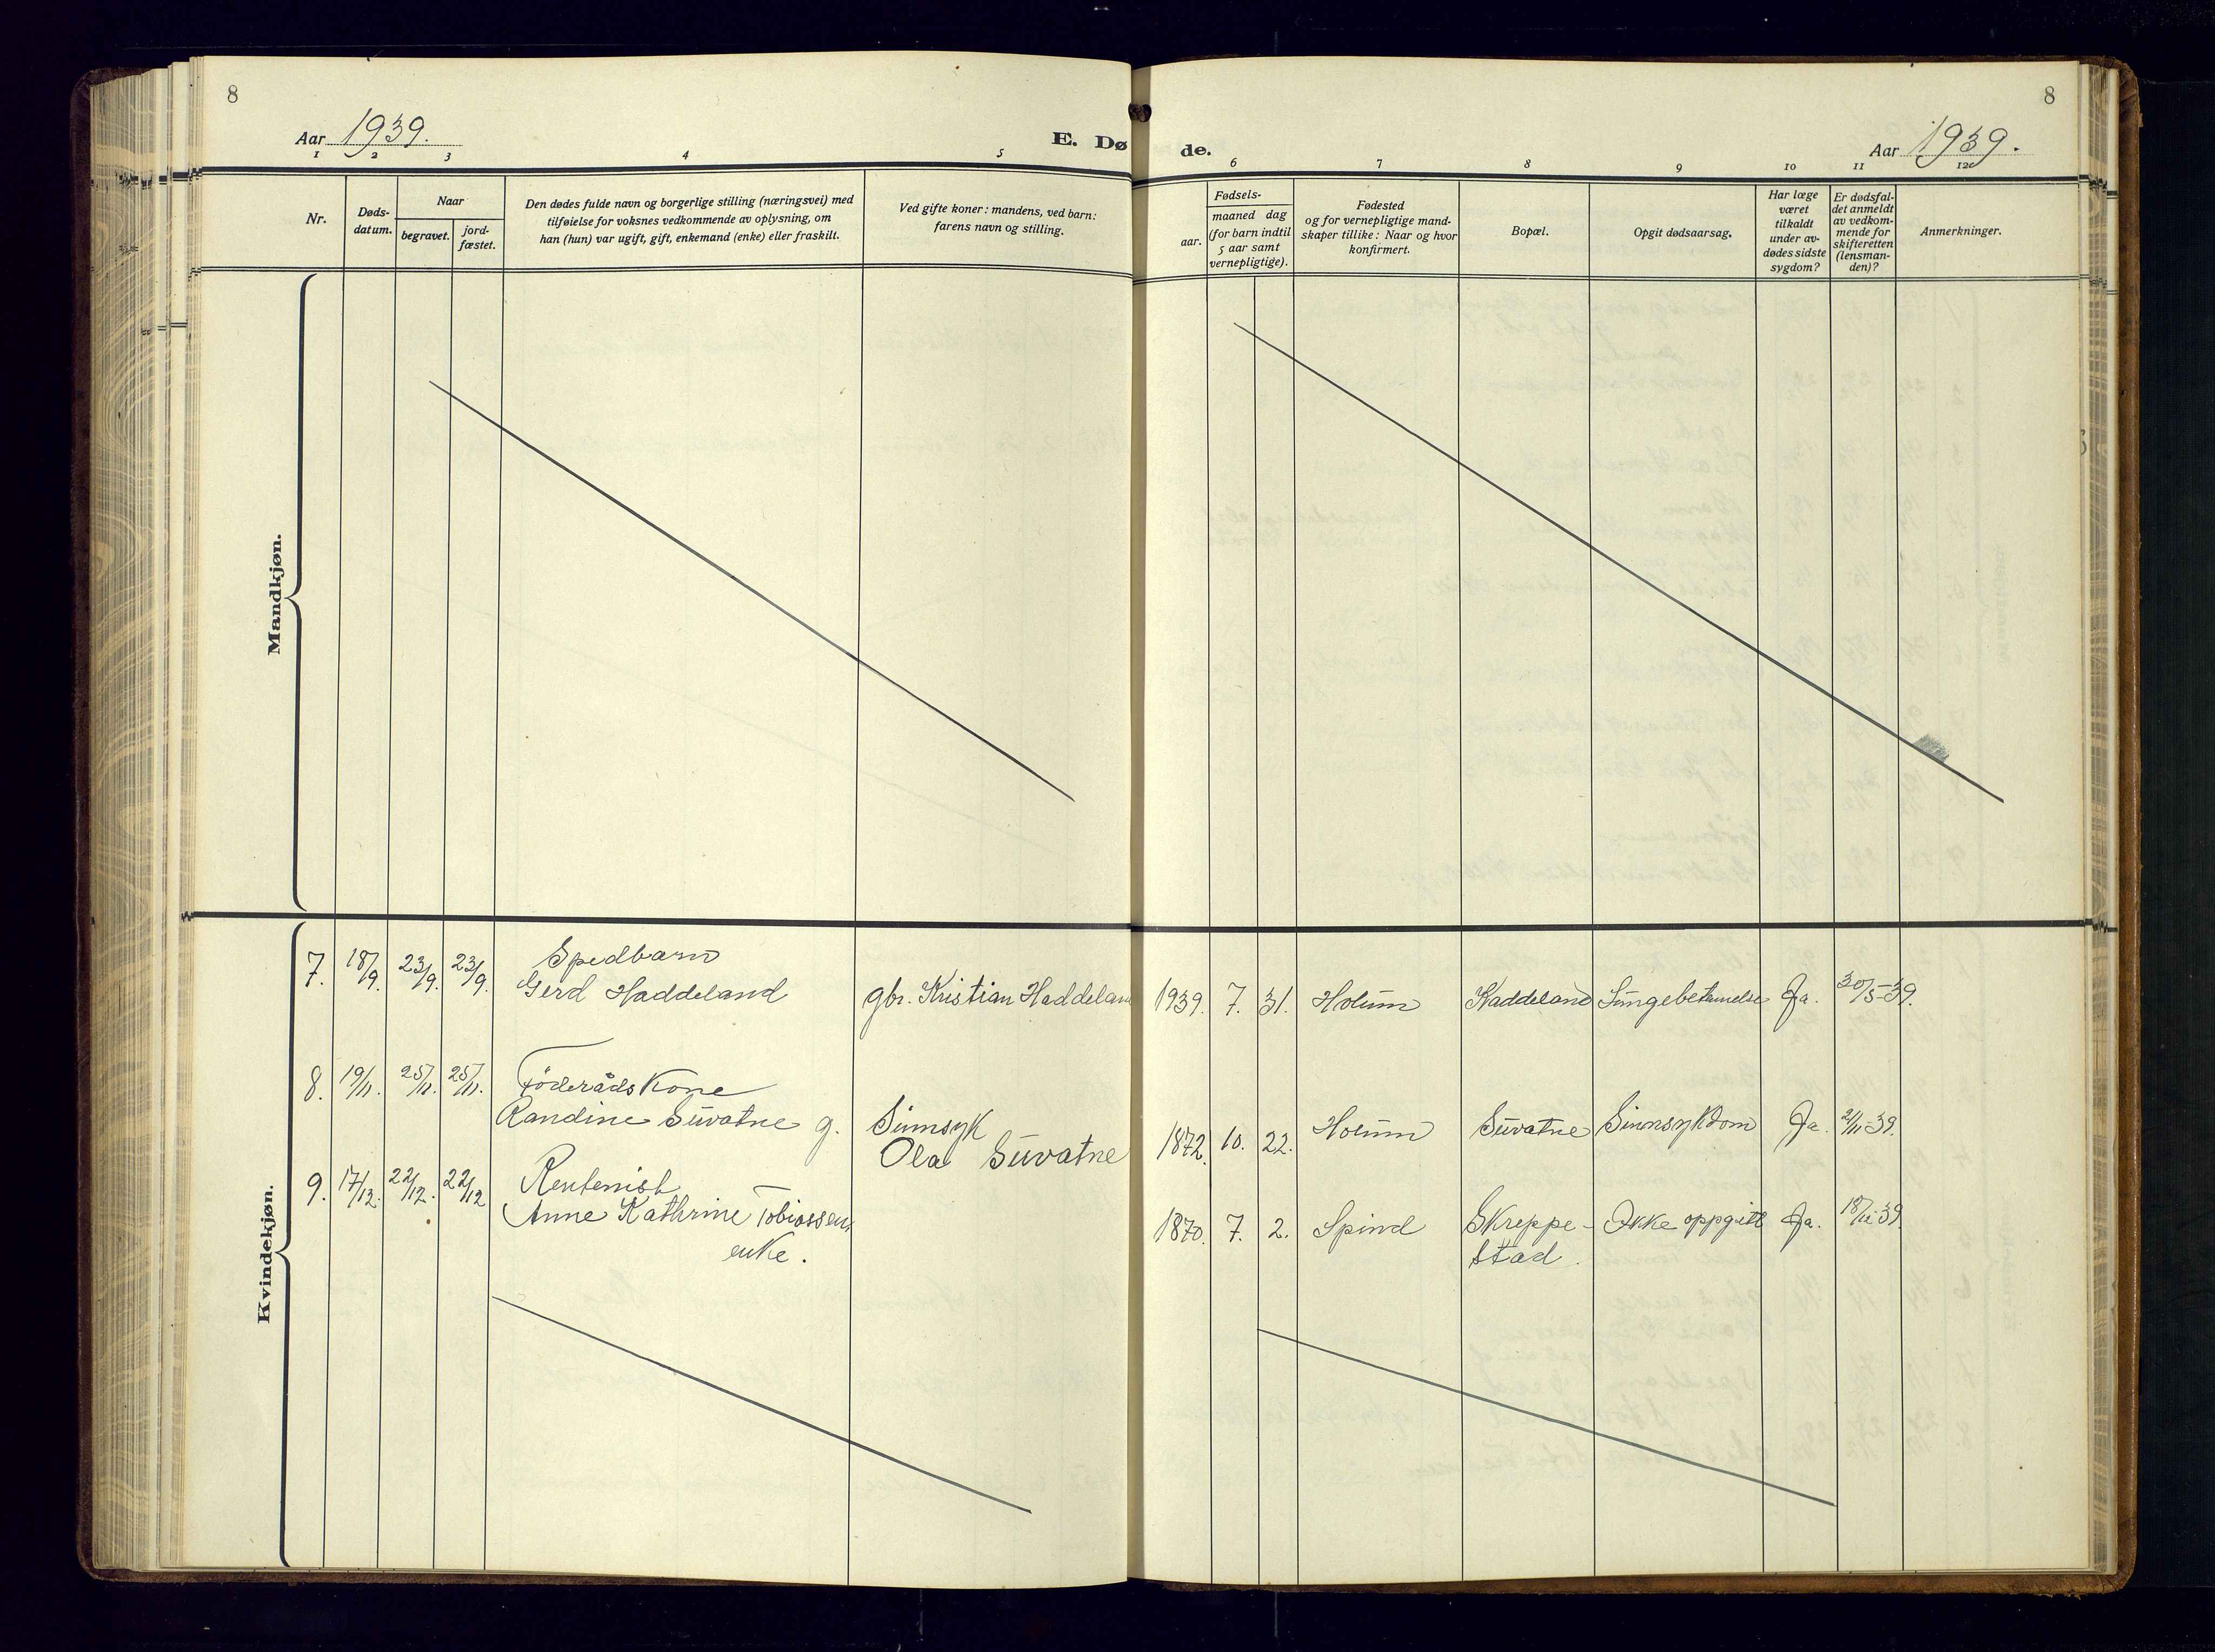 8
8
Aar 1939.
E. Dø
de.
Aar 1939.
1 2 3 4 5 6 7 8 9 10 11 12
Nr.
Døds-
datum.
Naar
begravet.
jord-
fæstet.
Den dødes fulde navn og borgerlige stilling (næringsvei) med
tilføielse for voksnes vedkommende av oplysning, om
han (hun) var ugift, gift, enkemand (enke) eller fraskilt.
Ved gifte koner: mandens, ved barn:
farens navn og stilling.
Fødsels-
aar.
maaned dag
(for barn indtil
5 aar samt
vernepligtige).
Fødested
og for vernepligtige mand-
skaper tillike: Naar og hvor
konfirmert.
Bopæl.
Opgit dødsaarsag.
Har læge
været
tilkaldt
under av-
dødes sidste
sygdom?
Er dødsfal-
det anmeldt
av vedkom-
mende for
skifteretten
(lensman-
den)?
Anmerkninger.
Mandkjøn.
Kvindekjøn.
7. 18/9. 23/9. 23/9. Spedbarn
Gerd Haddeland gbr. Kristian Haddeland 1939. 7. 31. Holum Haddeland Lungebetennelse Ja. 30/5-39.
8. 19/11. 25/11. 25/11. Föderåds Kone
Randine Suvatne g. Sinnsyk
Ola Suvatne 1872. 10. 22. Holum Suvatne Sinnsykdom Ja. 21/11-39.
9. 17/12. 22/12. 22/12 Rentenist
Anne Kathrine Tobiassen, 1870. 7. 2. Spind Skreppe- Ikke oppgitt Ja.
enke. stad.